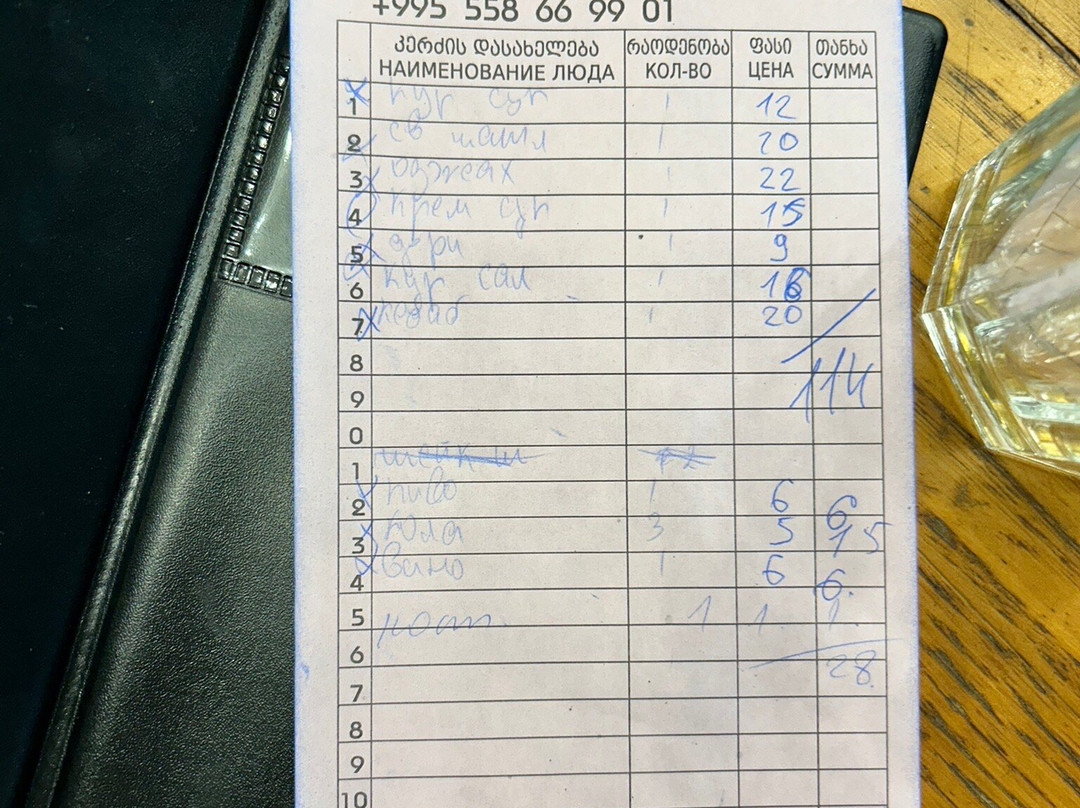 +995 558 66 99 01
კერძის დასახელება რაოდენობა ფასი თანხა
НАИМЕНОВАНИЕ ЛЮДА КОЛ-ВО ЦЕНА СУММА
1 кур суп 1 12
2 св шашл 1 20
3 оджах 1 22
4 крем суп 1 15
5 1 9
6 кур сал 1 16
7 кебаб 1 20
8
114
9
0
1
2 пиво 1 6 6
3 кола 3 5 15
4 вино 1 6 6.
5 1 1 1
6 28
7
8
9
10